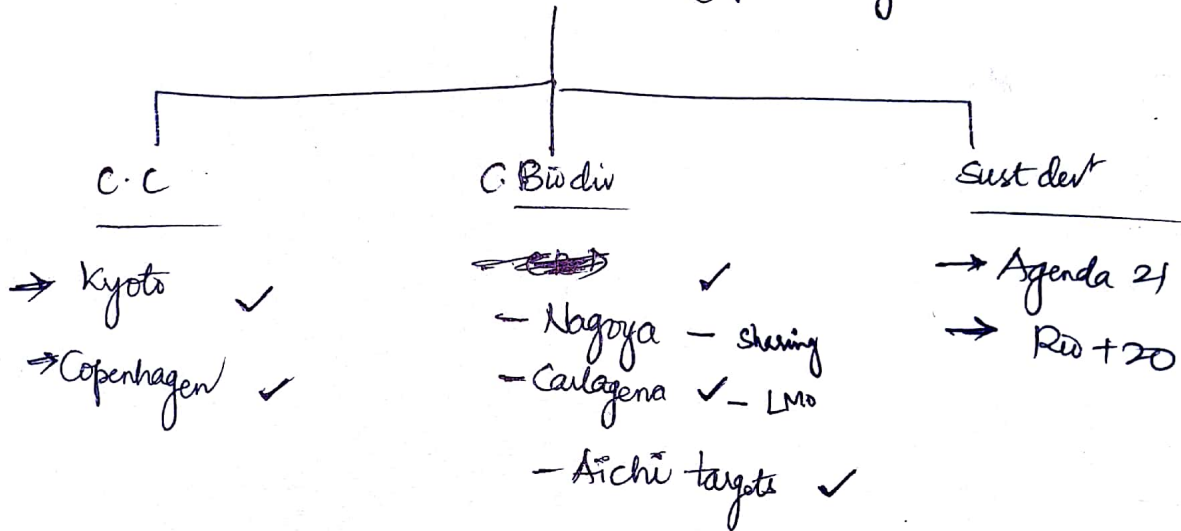 C.C
→ Kyoto ✓
→ Copenhagen ✓
C. Biodiv
✓
– Nagoya – sharing
– Cartagena ✓ – LMO
– Aichi targets ✓
Sust devt
→ Agenda 21
→ Rio +20